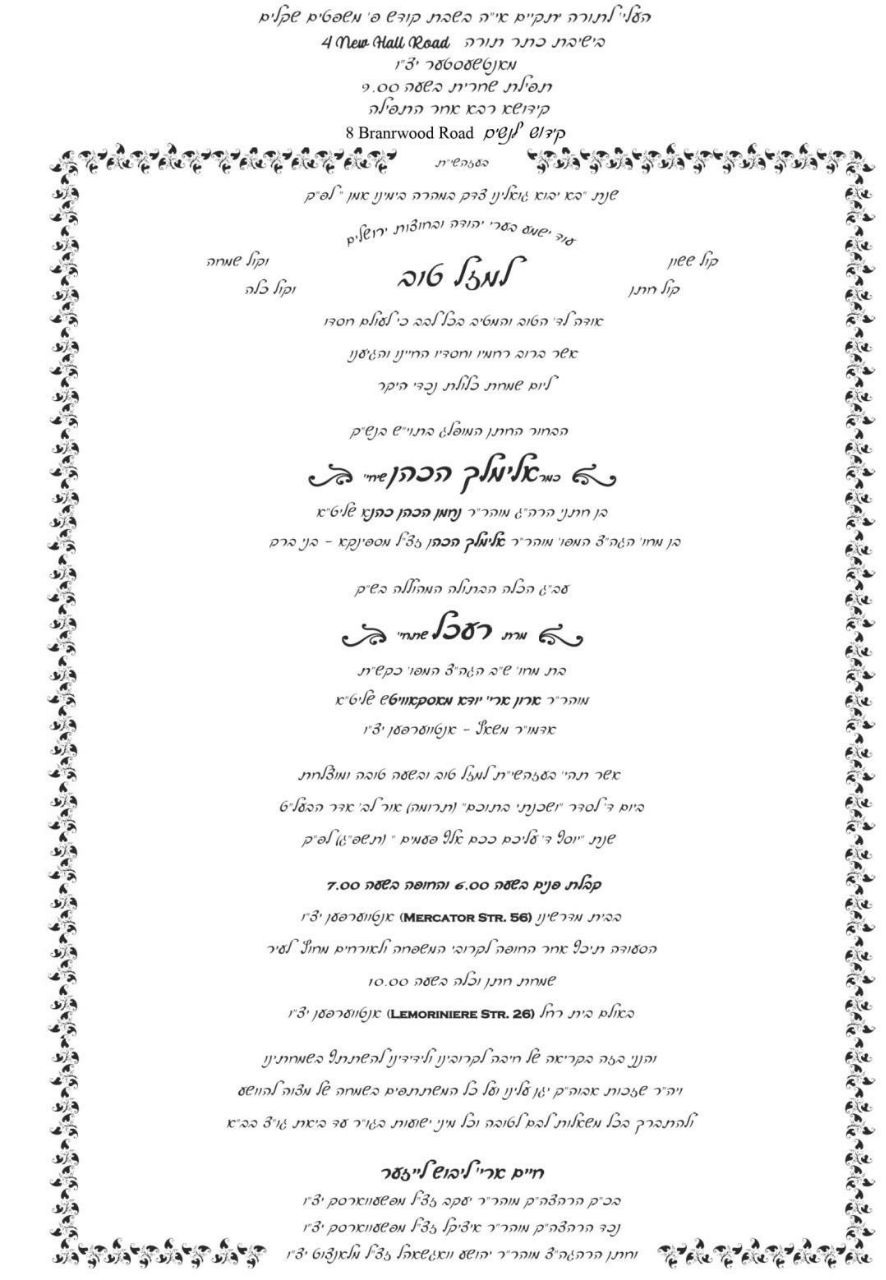 העלי' לתורה יתקיים אי"ה בשבת קודש פ' משפטים שקלים
בישיבת כתר תורה 4 New Hall Road
מאנטשעסטער יצ"ו
תפילת שחרית בשעה 9.00
קידושא רבא אחר התפילה
קידוש לנשים 8 Branrwood Road
בעזהשי"ת
שנת "בא יבוא גואלינו צדק במהרה בימינו אמן" לפ"ק
עוד ישמע בערי יהודה ובחוצות ירושלים
קול ששון וקול שמחה
למזל טוב
קול חתן וקול כלה
אודה לד' הטוב והמטיב בכל לבב כי לעולם חסדו
אשר ברוב רחמיו וחסדיו החיינו והגיענו
ליום שמחת כלולת נכדי היקר
הבחור החתן המופלג בתוי"ש בנש"ק
כמר אלימלך הכהן שיחי'
בן חתני הרה"ג מוהר"ר נחמן הכהן כהנא שליט"א
בן מחו' הגה"צ המפו' מוהר"ר אלימלך הכהן זצ"ל מספינקא - בני ברק
עב"ג הכלה הבתולה המהוללה בש"ק
מרת רעכל שתחי'
בת מחו' ש"ב הגה"צ המפו' כקש"ת
מוהר"ר ארון ארי' יודא מאסקאוויטש שליט"א
אדמו"ר משאץ - אנטווערפען יצ"ו
אשר תהי' בעזהשי"ת למזל טוב ובשעה טובה ומוצלחת
ביום ד' לסדר "ושכנתי בתוכם" (תרומה) אור לב' אדר הבעל"ט
שנת "יוסף ד' עליכם ככם אלף פעמים" (תשפ"ג) לפ"ק
קבלת פנים בשעה 6.00 והחופה בשעה 7.00
בבית מדרשינו (MERCATOR STR. 56) אנטווערפען יצ"ו
הסעודה תיכף אחר החופה לקרובי המשפחה ולאורחים מחוץ לעיר
שמחת חתן וכלה בשעה 10.00
באולם בית רחל (LEMORINIERE STR. 26) אנטווערפען יצ"ו
והנני בזה בקריאה של חיבה לקרובינו ולידידינו להשתתף בשמחתינו
ויה"ר שזכות אבוה"ק יגן עלינו ועל כל המשתתפים בשמחה של מצוה להוושע
ולהתברך בכל משאלות לבם לטובה וכל מיני ישועות בגו"ר עד ביאת גו"צ בב"א
חיים ארי' ליבוש לייזער
בכ"ק הרהצה"ק מוהר"ר יעקב זצ"ל מפשעווארסק יצ"ו
נכד הרהצה"ק מוהר"ר איציקל זצ"ל מפשעווארסק יצ"ו
וחתן הרהגה"צ מוהר"ר יהושע וואגשאהל זצ"ל מלאנצוט יצ"ו